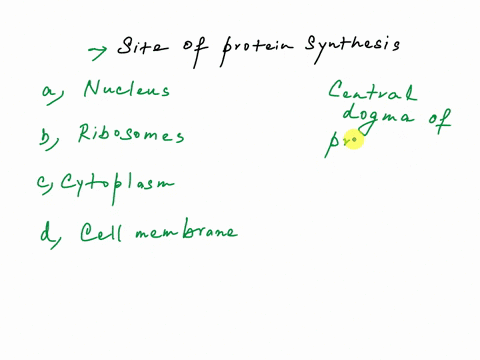 → Site of protein synthesis
a, Nucleus
b, Ribosomes
c, Cytoplasm
d, Cell membrane
Central
dogma of